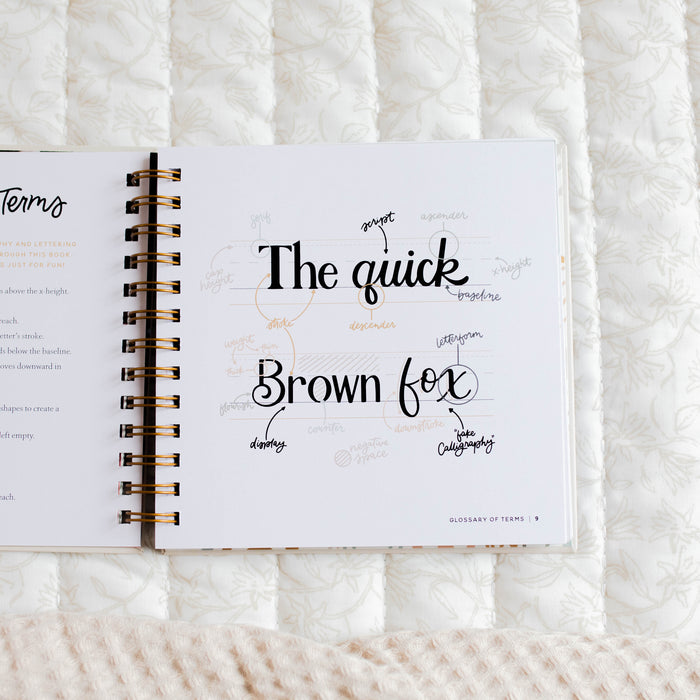 Terms
PHY AND LETTERING
ROUGH THIS BOOK
S JUST FOR FUN!
s above the x-height.
reach.
etter's stroke.
ds below the baseline.
oves downward in
shapes to create a
left empty.
reach.
serif
script
ascender
case
height
x-height
The quick
baseline
stroke
descender
weight
thin
thick
letterform
Brown fox
flourish
display
counter
downstroke
"fake
Calligraphy"
negative
space
GLOSSARY OF TERMS | 9